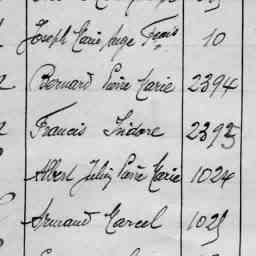 Joseph Marie Ange Franis 10
Bernard Pierre Marie 2394
Francis Isidore 2395
Albert Julien Pierre Marie 1024
Armand Marcel 1025